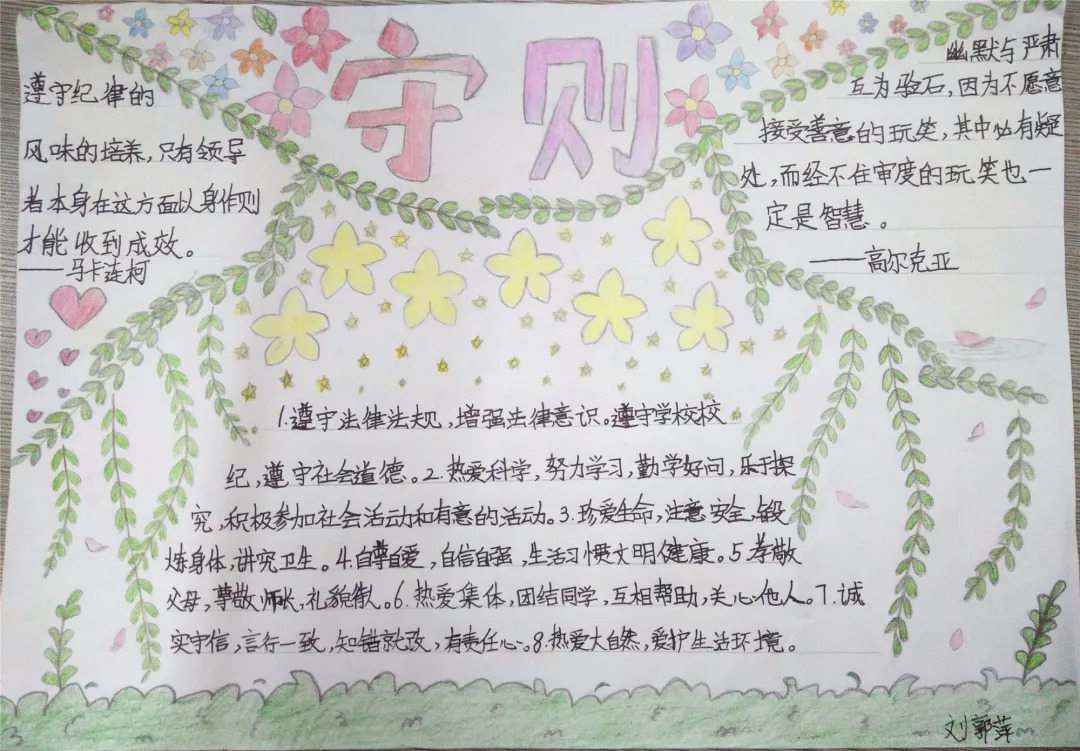 守则
遵守纪律的
风味的培养,只有领导
者本身在这方面以身作则
才能收到成效。
——马卡连柯
幽默与严肃
互为验石,因为不愿意
接受善意的玩笑,其中必有疑
处,而经不住审度的玩笑也一
定是智慧。
——高尔克亚
1.遵守法律法规,增强法律意识。遵守学校校
纪,遵守社会道德。2.热爱科学,努力学习,勤学好问,乐于探
究,积极参加社会活动和有意的活动。3.珍爱生命,注意安全,锻
炼身体,讲究卫生。4.自尊自爱,自信自强,生活习惯文明健康。5.孝敬
父母,尊敬师长,礼貌待人。6.热爱集体,团结同学,互相帮助,关心他人。7.诚
实守信,言行一致,知错就改,有责任心。8.热爱大自然,爱护生活环境。
刘郭萍